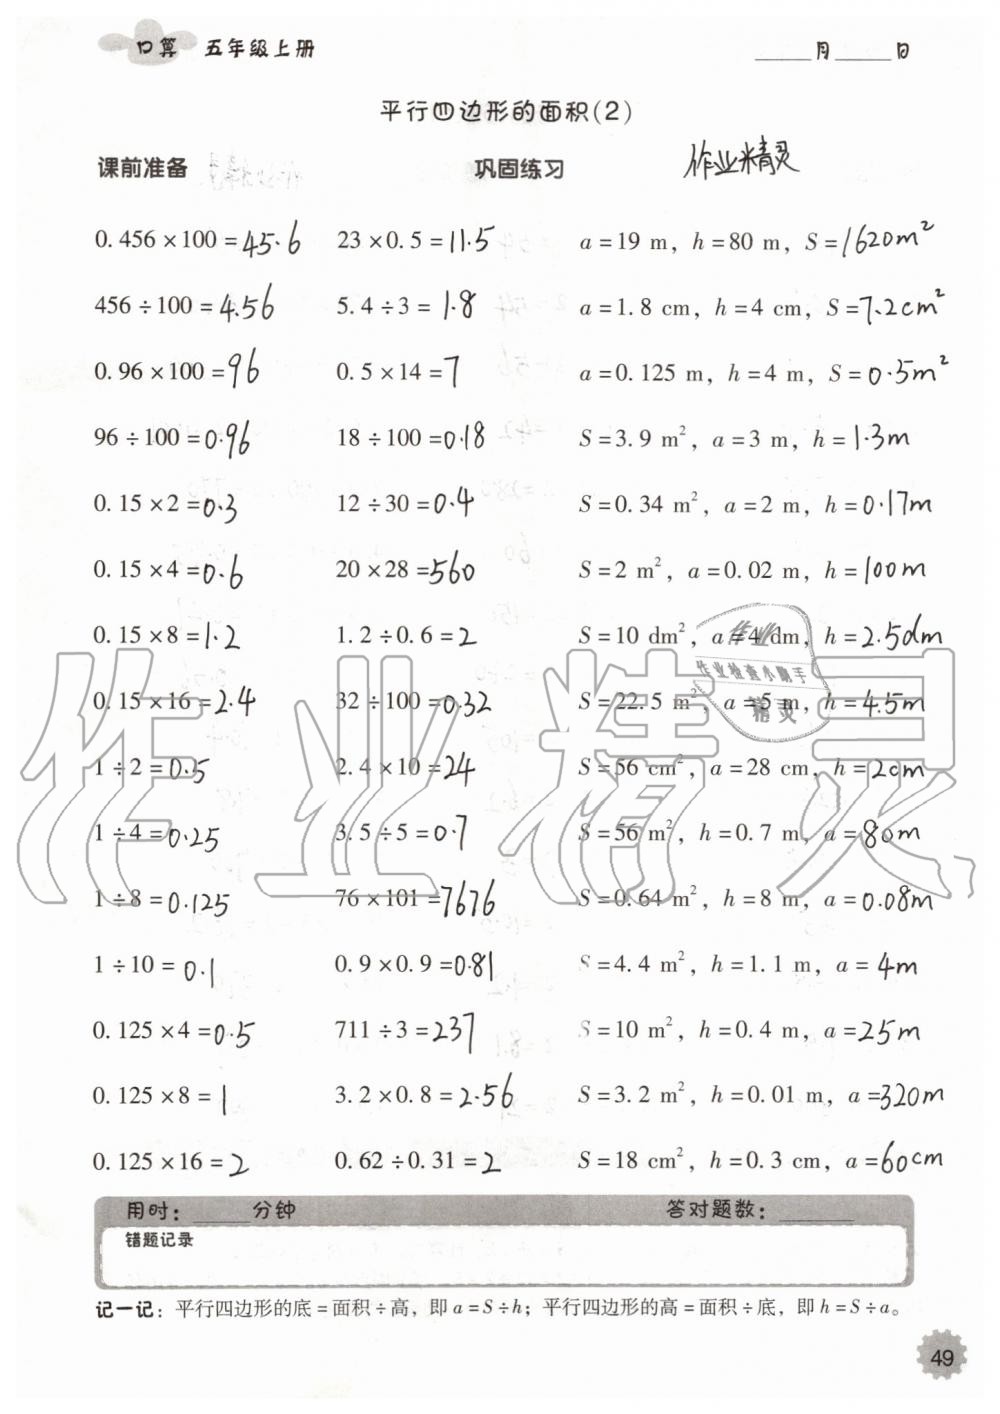 口算 五年级上册 ____月____日
平行四边形的面积(2)
课前准备 巩固练习 作业精灵
0.456×100=45.6 23×0.5=11.5 a=19 m, h=80 m, S=1620m²
456÷100=4.56 5.4÷3=1.8 a=1.8 cm, h=4 cm, S=7.2cm²
0.96×100=96 0.5×14=7 a=0.125 m, h=4 m, S=0.5m²
96÷100=0.96 18÷100=0.18 S=3.9 m², a=3 m, h=1.3m
0.15×2=0.3 12÷30=0.4 S=0.34 m², a=2 m, h=0.17m
0.15×4=0.6 20×28=560 S=2 m², a=0.02 m, h=100m
0.15×8=1.2 1.2÷0.6=2 S=10 dm², a=4 dm, h=2.5dm
0.15×16=2.4 32÷100=0.32 S=22.5 m², a=5 m, h=4.5m
1÷2=0.5 2.4×10=24 S=56 cm², a=28 cm, h=2cm
1÷4=0.25 3.5÷5=0.7 S=56 m², h=0.7 m, a=80m
1÷8=0.125 76×101=7676 S=0.64 m², h=8 m, a=0.08m
1÷10=0.1 0.9×0.9=0.81 S=4.4 m², h=1.1 m, a=4m
0.125×4=0.5 711÷3=237 S=10 m², h=0.4 m, a=25m
0.125×8=1 3.2×0.8=2.56 S=3.2 m², h=0.01 m, a=320m
0.125×16=2 0.62÷0.31=2 S=18 cm², h=0.3 cm, a=60cm
作业
作业检查小助手
精灵
作业精灵
用时：____分钟 答对题数：____
错题记录
记一记：平行四边形的底=面积÷高，即a=S÷h；平行四边形的高=面积÷底，即h=S÷a。
49